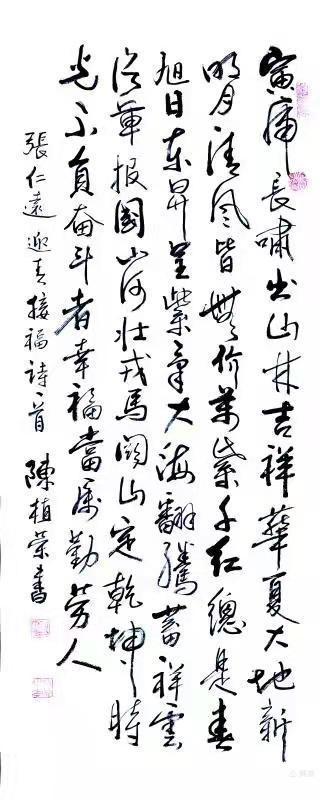 寅虎長嘯出山林吉祥華夏大地新
明月清风皆無价萬紫千红總是春
旭日东昇呈紫氣大海翻騰蓄祥雲
從軍报國山河壮戎馬関山定乾坤時
光不負奋斗者幸福當属勤劳人
張仁遠迎春接福詩二首 陳植榮書